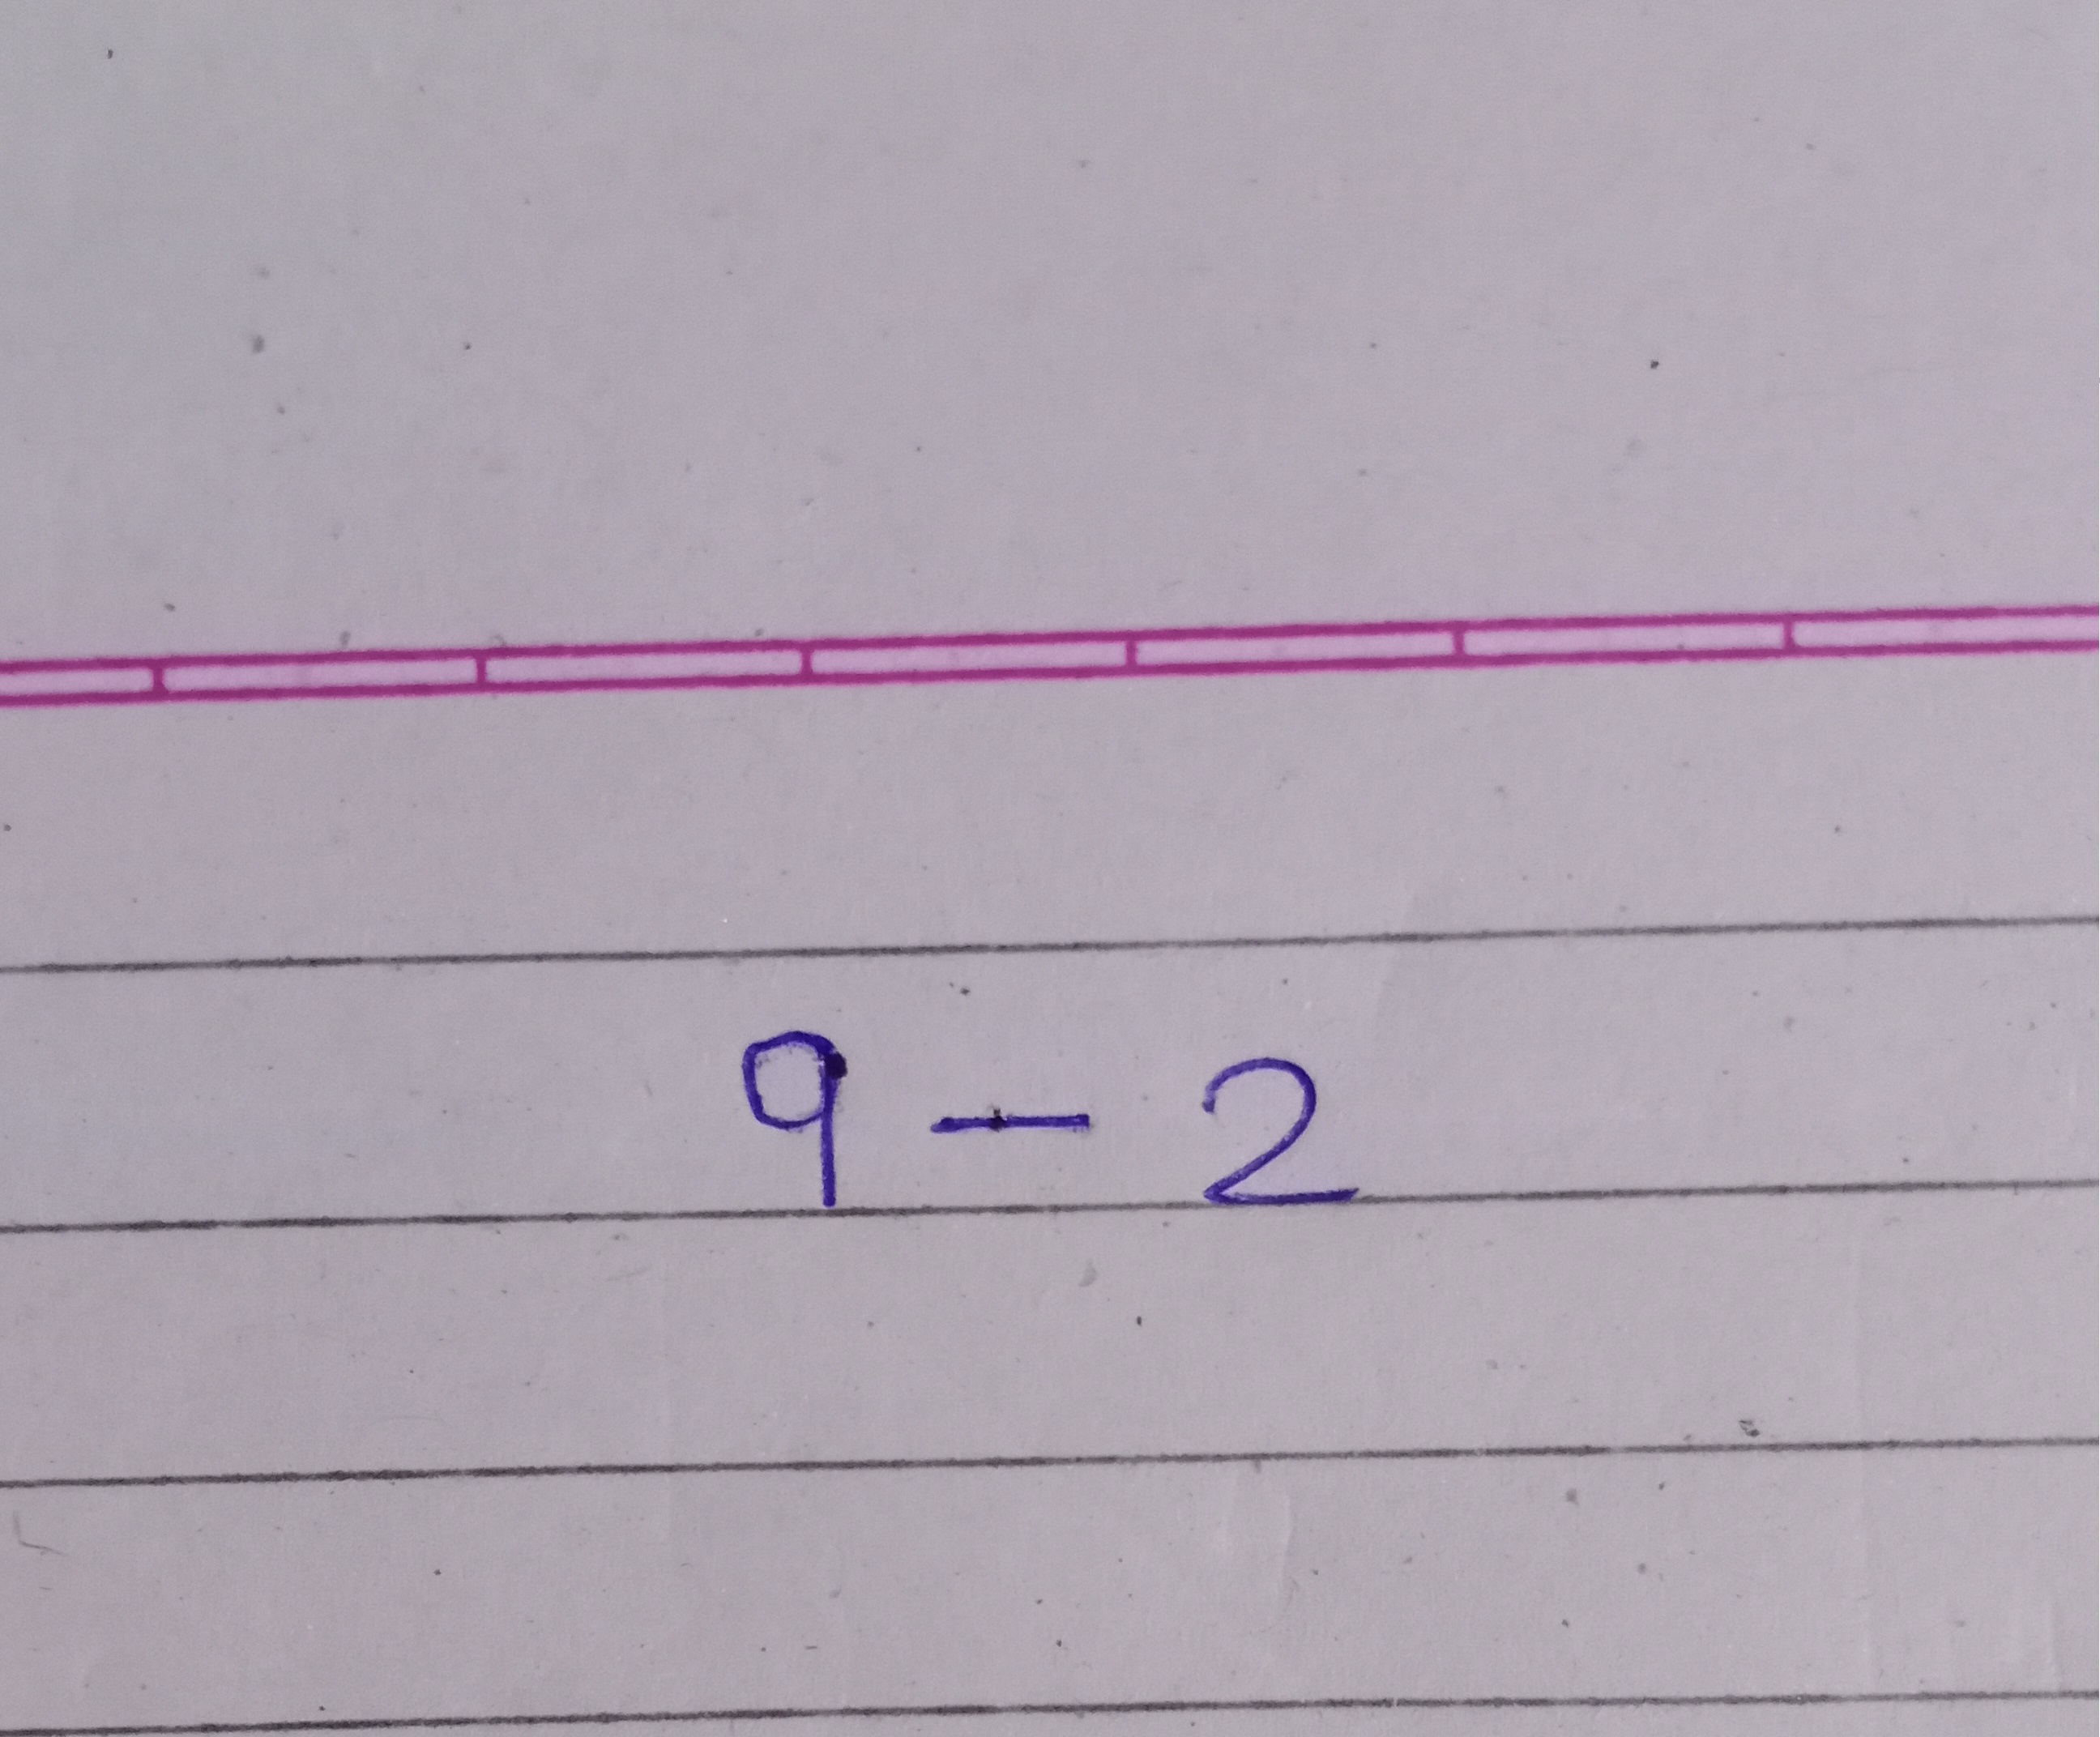 9 - 2